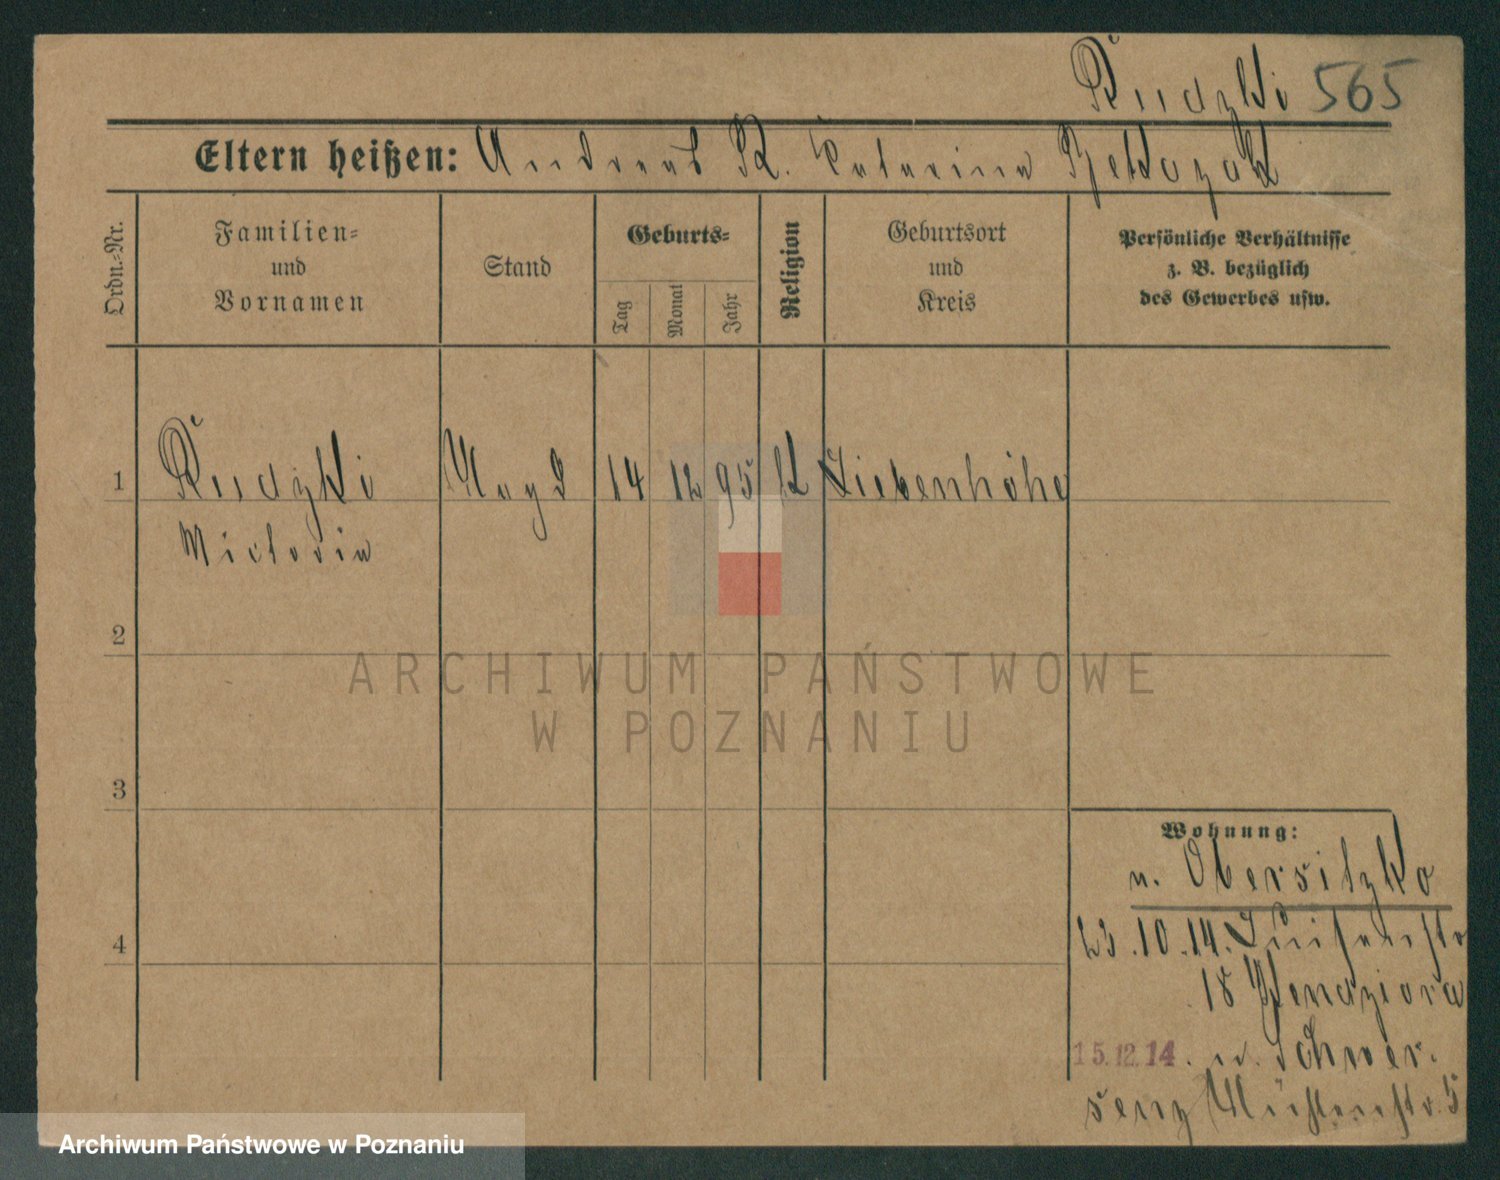 Rudzki 565
Eltern heißen: Andreas R. Katarina
Ordn.-Nr.
Familien-
und
Vornamen
Stand
Geburts-
Tag
Monat
Jahr
Religion
Geburtsort
und
Kreis
Persönliche Verhältnisse
z. B. bezüglich
des Gewerbes usw.
1 Rudzki Magd 14 12 95 K Liebenhöhe
Victoria
2
3
4
Wohnung:
n. Obersitzko
23.10.14. Luisenstr
18
15.12.14. n. Schwer-
senz Mühlenstr. 5
ARCHIWUM PAŃSTWOWE
W POZNANIU
Archiwum Państwowe w Poznaniu